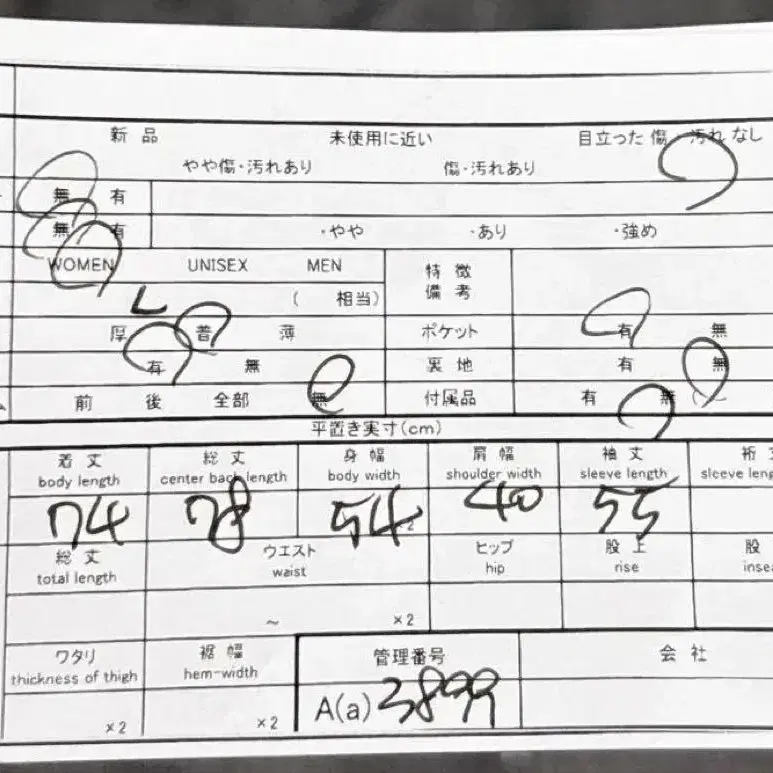 新品 未使用に近い 目立った傷・汚れなし
やや傷・汚れあり 傷・汚れあり
無 有
無 有 ・やや ・あり ・強め
WOMEN UNISEX MEN 特徴
備考
L ( 相当)
厚 普 薄 ポケット 有 無
有 無 裏地 有 無
前 後 全部 無 付属品 有 無 (
平置き実寸(cm)
着丈 総丈 身幅 肩幅 袖丈 裄
body length center back length body width shoulder width sleeve length sleeve length
74 78 54 ×2 40 55
総丈 ウエスト ヒップ 股上 股
total length waist hip rise
~ ×2
ワタリ 裾幅 管理番号 会社
thickness of thigh hem-width
×2 ×2 A(a) 3899